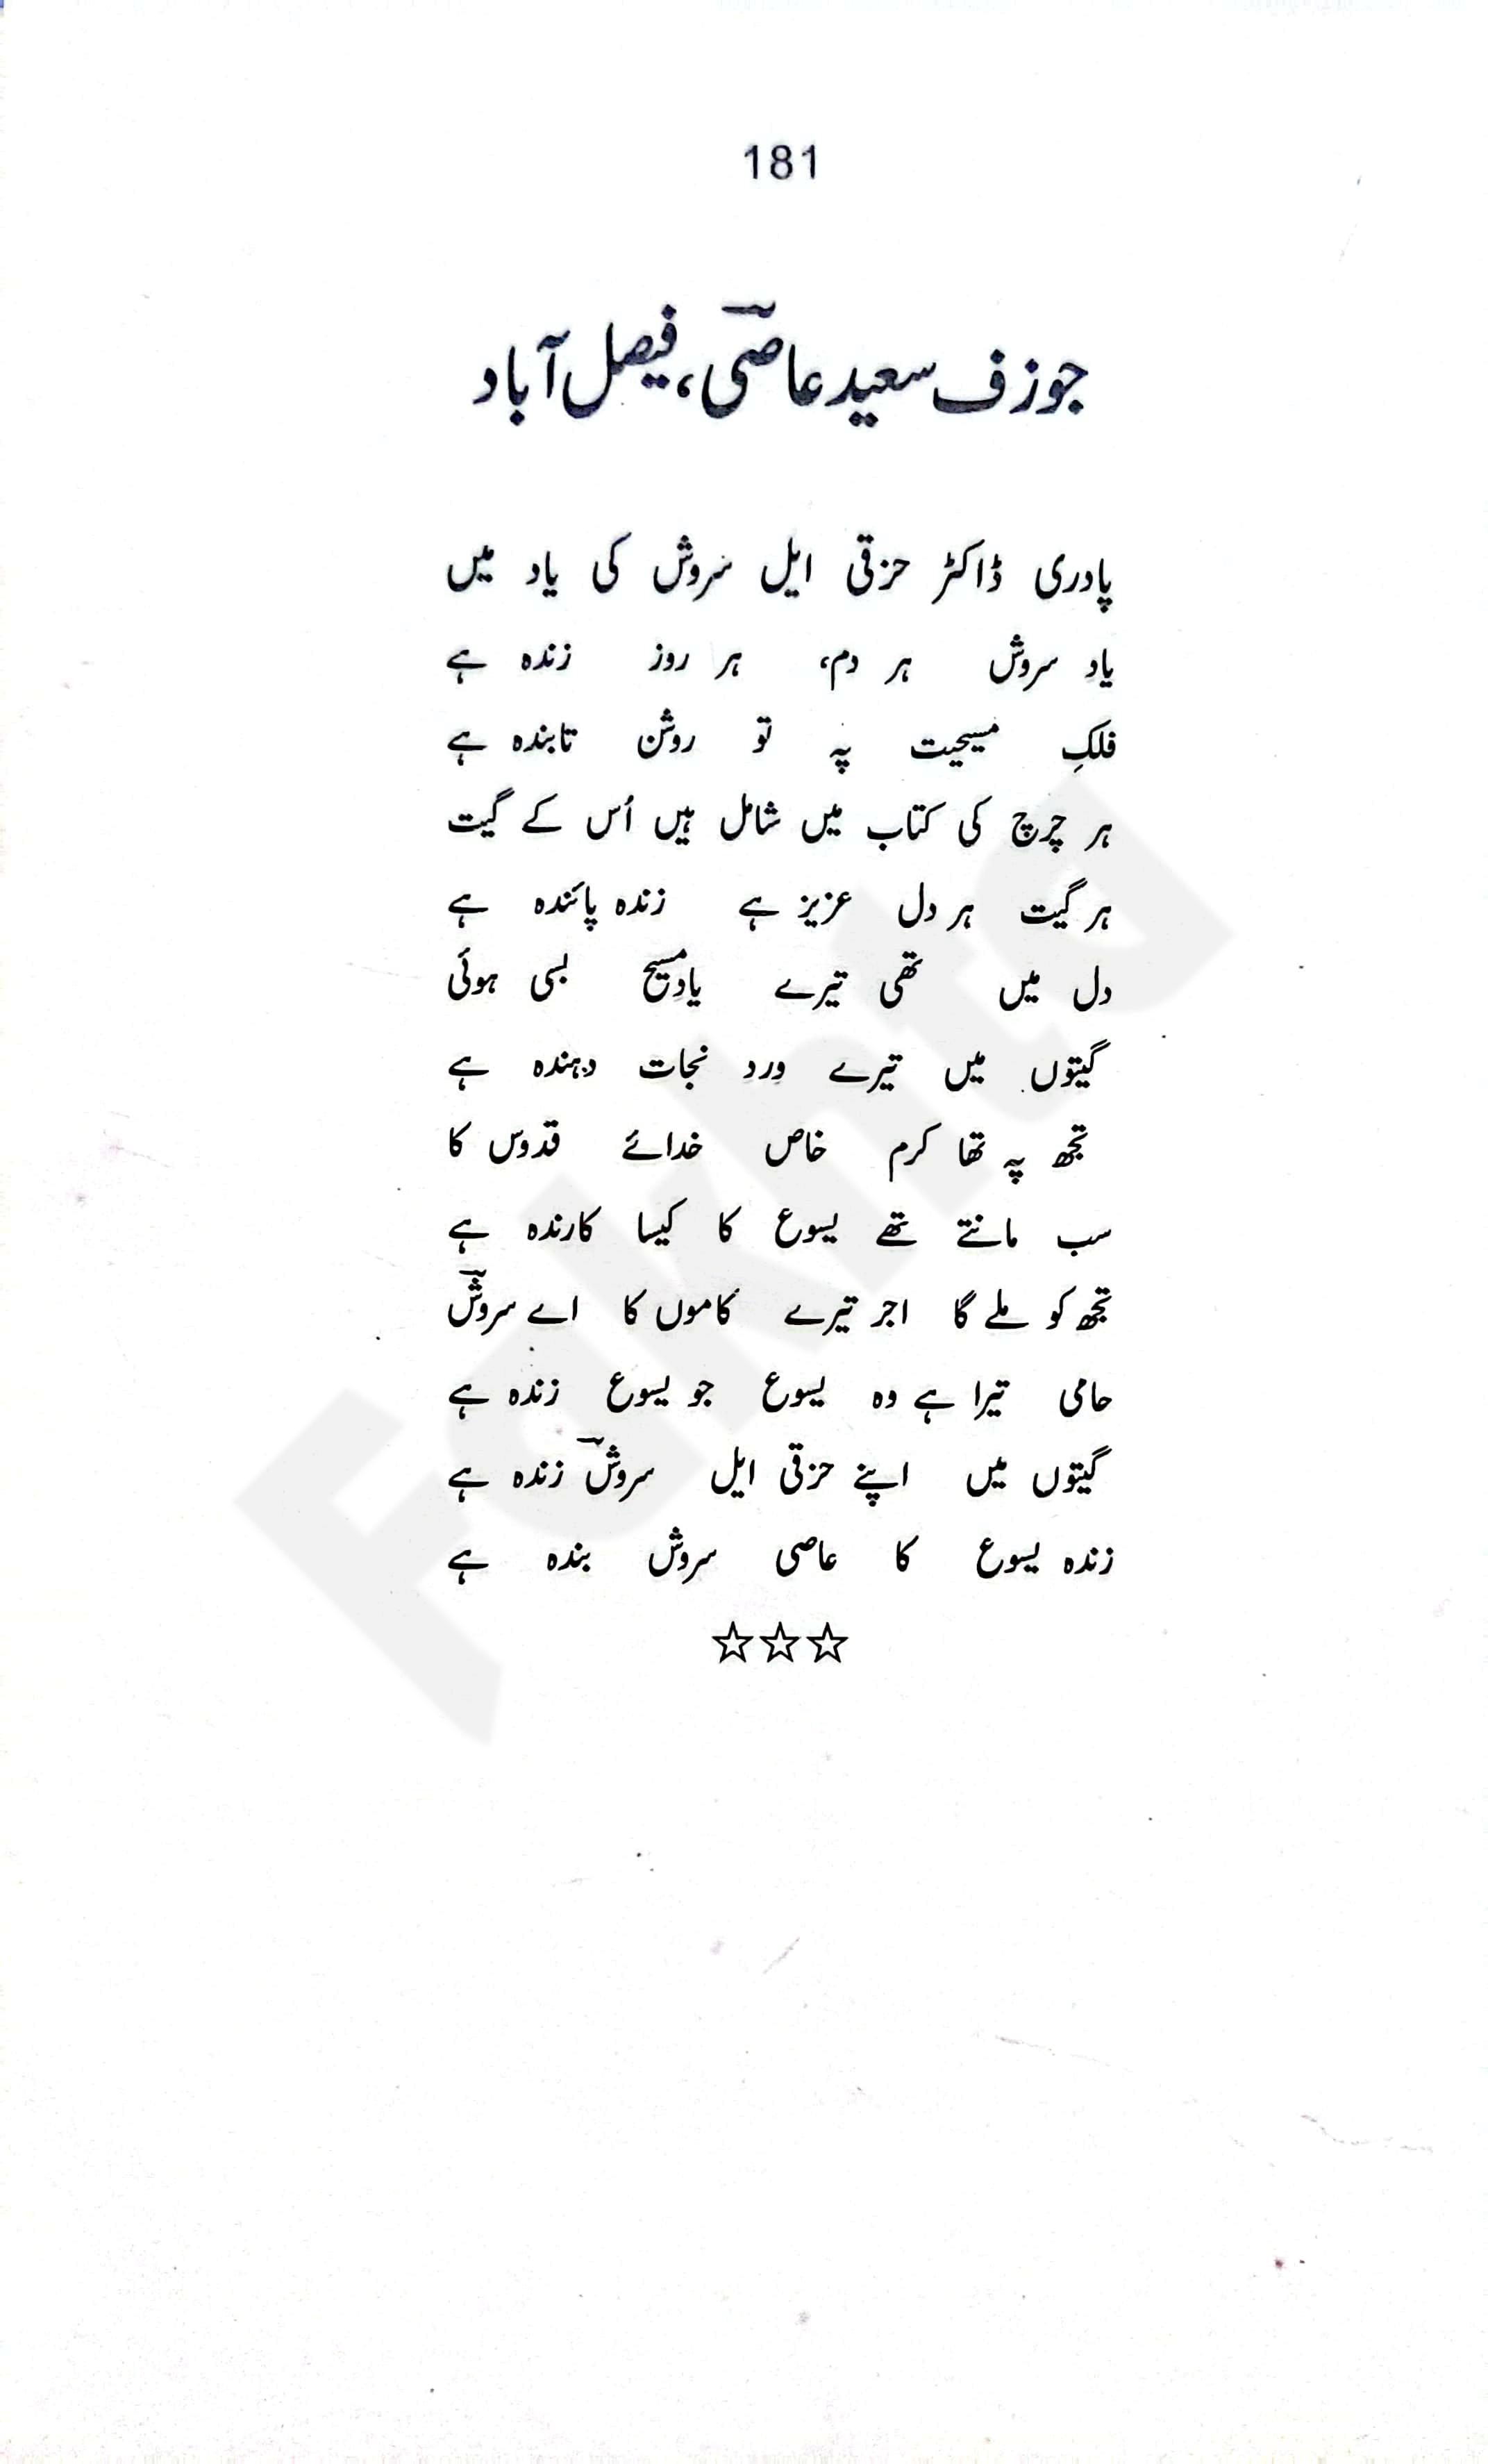 181
جوزف سعید عاصیؔ، فیصل آباد
پادری ڈاکٹر حزقی ایل سروش کی یاد میں
یاد سروش ہر دم، ہر روز زندہ ہے
فلکِ مسیحیت پہ تو روشن تابندہ ہے
ہر چرچ کی کتاب میں شامل ہیں اُس کے گیت
ہر گیت ہر دل عزیز ہے زندہ پائندہ ہے
دل میں تھی تیرے یادِ مسیح بسی ہوئی
گیتوں میں تیرے ورد نجات دہندہ ہے
تجھ پہ تھا کرم خاص خدائے قدوس کا
سب مانتے تھے یسوع کا کیسا کارندہ ہے
تجھ کو ملے گا اجر تیرے کاموں کا اے سروشؔ
حامی تیرا ہے وہ یسوع جو یسوع زندہ ہے
گیتوں میں اپنے حزقی ایل سروشؔ زندہ ہے
زندہ یسوع کا عاصی سروش بندہ ہے
☆☆☆
Fakhta